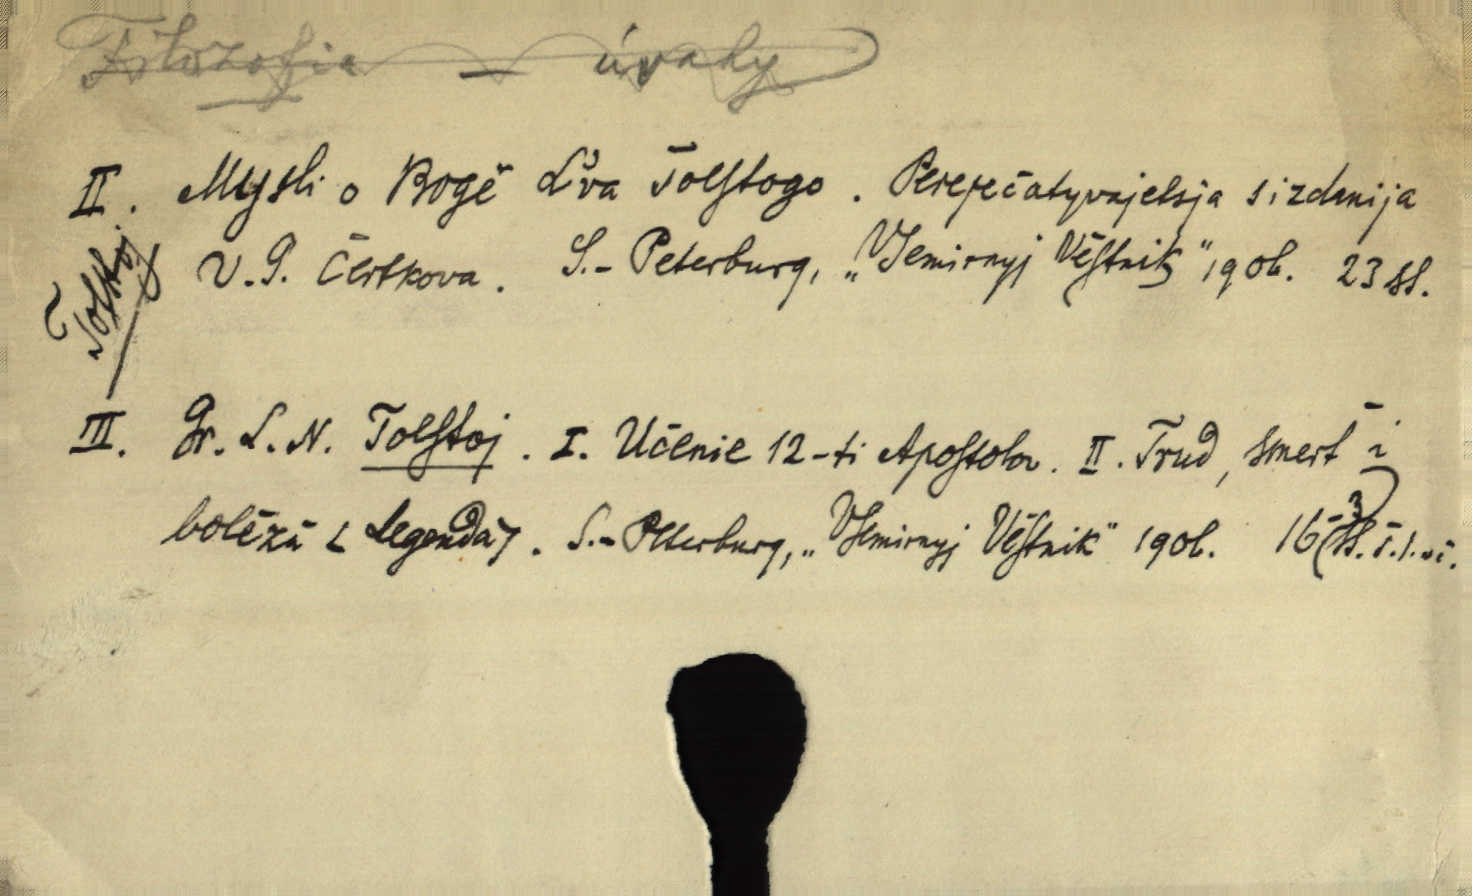 Filozofia — úvahy
II. Mysli o Bogě L'va Tolstogo. Perepečatyvajetsja s izdanija
V. G. Čertkova. S.-Peterburg, „Vsemirnyj Věstnik" 1906. 23 ss.
Tolstoj
III. Gr. L. N. Tolstoj. I. Učenie 12-ti Apostolov. II. Trud, smert i
3
S.-Peterburg, „Vsemirnyj Věstnik" 1906. 16